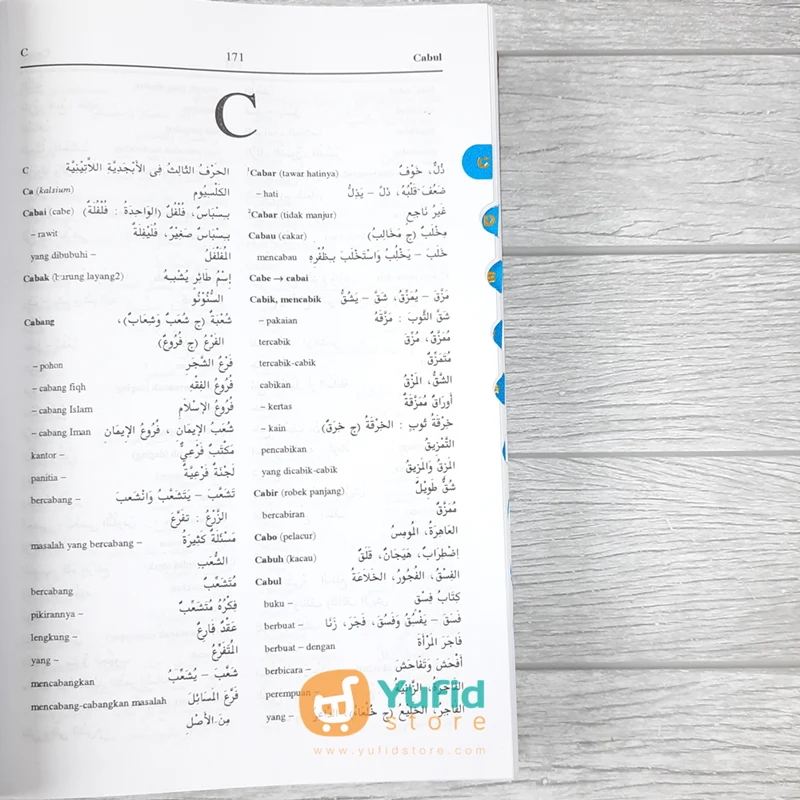 C 171 Cabul
C
C الحَرْفُ الثَّالِثُ فِى الأَبْجَدِيَّةِ اللاَّتِيْنِيَّة
Ca (kalsium) الكَلْسِيُوم
Cabai (cabe) بِسْبَاسٌ، فُلْفُلٌ (الوَاحِدَةُ : فُلْفُلَةٌ)
– rawit بِسْبَاسٌ صَغِيْرٌ، فُلَيْفِلَةٌ
yang dibubuhi – المُفَلْفَلُ
Cabak (burung layang2) إِسْمُ طَائِرٍ يُشْبِهُ
السُّنُوْنُوْ
Cabang شُعْبَةٌ (ج شُعَبٌ وَشِعَابٌ)،
الفَرْعُ (ج فُرُوعٌ)
– pohon فَرْعُ الشَّجَرِ
– cabang fiqh فُرُوعُ الفِقْهِ
– cabang Islam فُرُوعُ الإِسْلَامِ
– cabang Iman شُعَبُ الإِيمَانِ ، فُرُوعُ الإِيمَانِ
kantor – مَكْتَبٌ فَرْعِيٌّ
panitia – لَجْنَةٌ فَرْعِيَّةٌ
bercabang – تَشَعَّبَ – يَتَشَعَّبُ وَانْشَعَبَ
الزَّرْعُ : تفَرَّعَ
masalah yang bercabang – مَسْئَلَةٌ كَثِيْرَةُ
الشُّعَبِ
bercabang مُتَشَعِّبٌ
pikirannya – فِكْرُهُ مُتَشَعِّبٌ
lengkung – عَقْدٌ فَارِعٌ
yang – المُتَفَرِّعُ
mencabangkan شَعَّبَ – يُشَعِّبُ
mencabang-cabangkan masalah فَرَّعَ المَسَائِلَ
مِنَ الأَصْلِ
¹Cabar (tawar hatinya) ذُلٌّ، خَوْفٌ
– hati ضَعُفَ قَلْبُهُ، ذَلَّ – يَذِلُّ
²Cabar (tidak manjur) غَيْرُ نَاجِعٍ
Cabau (cakar) مِخْلَبٌ (ج مَخَالِبُ)
mencabau خَلَبَ – يَخْلُبُ وَاسْتَخْلَبَ بِظُفْرِهِ
Cabe → cabai
Cabik, mencabik مَزَّقَ – يُمَزِّقُ، شَقَّ – يَشُقُّ
– pakaian شَقَّ الثَّوبَ : مَزَّقَهُ
tercabik مُمَزَّقٌ، مُزِّقَ
tercabik-cabik مُتَمَزِّقٌ
cabikan الشَّقُّ، المَزْقُ
– kertas أَوْرَاقٌ مُمَزَّقَةٌ
– kain خِرْقَةُ ثَوبٍ : الخِرْقَةُ (ج خِرَقٌ)
pencabikan التَّمْزِيقُ
yang dicabik-cabik المَزِقُ وَالمَزِيقُ
Cabir (robek panjang) شَقٌّ طَوِيْلٌ
bercabiran مُمَزَّقٌ
Cabo (pelacur) العَاهِرَةُ، المُومِسُ
Cabuh (kacau) إِضْطِرَابٌ، هَيَجَانٌ، قَلَقٌ
Cabul الفِسْقُ، الفُجُورُ، الخَلاَعَةُ
buku – كِتَابُ فِسْقٍ
berbuat – فَسَقَ – يَفْسُقُ وَفَسُقَ، فَجَرَ، زَنَا
berbuat – dengan فَاجَرَ المَرْأَةَ
berbicara – أَفْحَشَ وَتَفَاحَشَ
perempuan – الفَاجِرَةُ، الزَّانِيَةُ
yang – الفَاجِرُ، الخَلِيْعُ (ج خُلَعَاءُ)
Yufid
store
www.yufidstore.com